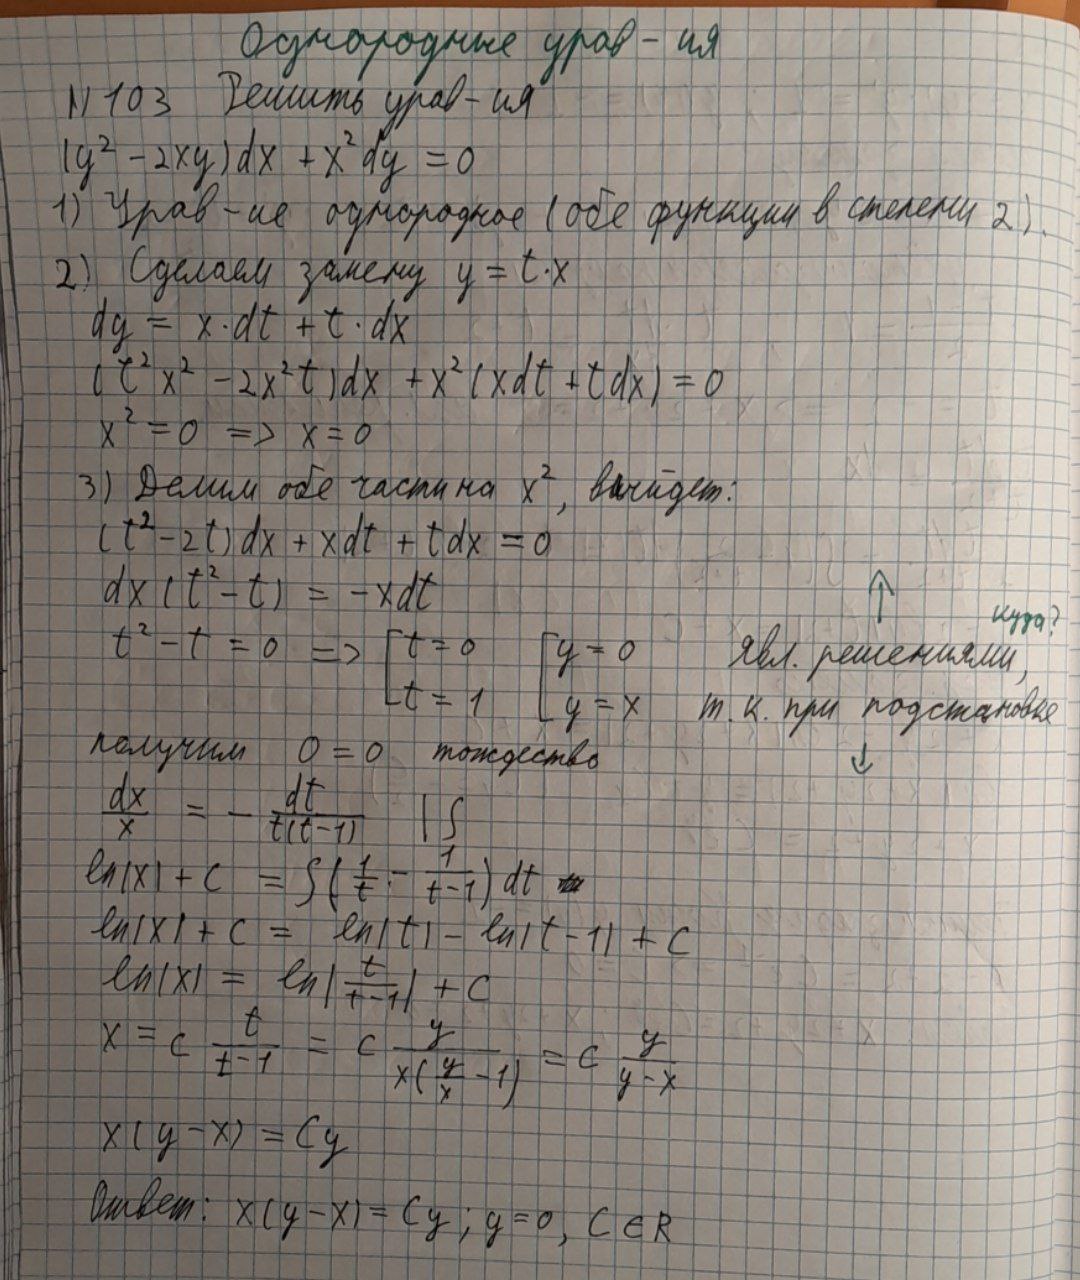 Однородные урав-ия
N 103 Решить урав-ия
(y² - 2xy)dx + x²dy = 0
1) Урав-ие однородное (обе функции в степени 2).
2) Сделаем замену y = t·x
dy = x·dt + t·dx
(t²x² - 2x²t)dx + x²(xdt + tdx) = 0
x² = 0 => x = 0
3) Делим обе части на x², выйдет:
(t² - 2t)dx + xdt + tdx = 0
dx(t² - t) = -xdt
↑ куда?
t² - t = 0 => [t = 0 [y = 0 Явл. решениями,
t = 1 y = x т.к. при подстановке
получим 0 = 0 тождество ↓
dx/x = - dt/t(t-1) | ∫
ln|x| + C = ∫(1/t - 1/t-1)dt
ln|x| + C = ln|t| - ln|t-1| + C
ln|x| = ln|t/t-1| + C
x = C t/t-1 = C y/x(y/x - 1) = C y/y-x
x(y-x) = Cy
Ответ: x(y-x) = Cy; y=0, C∈R